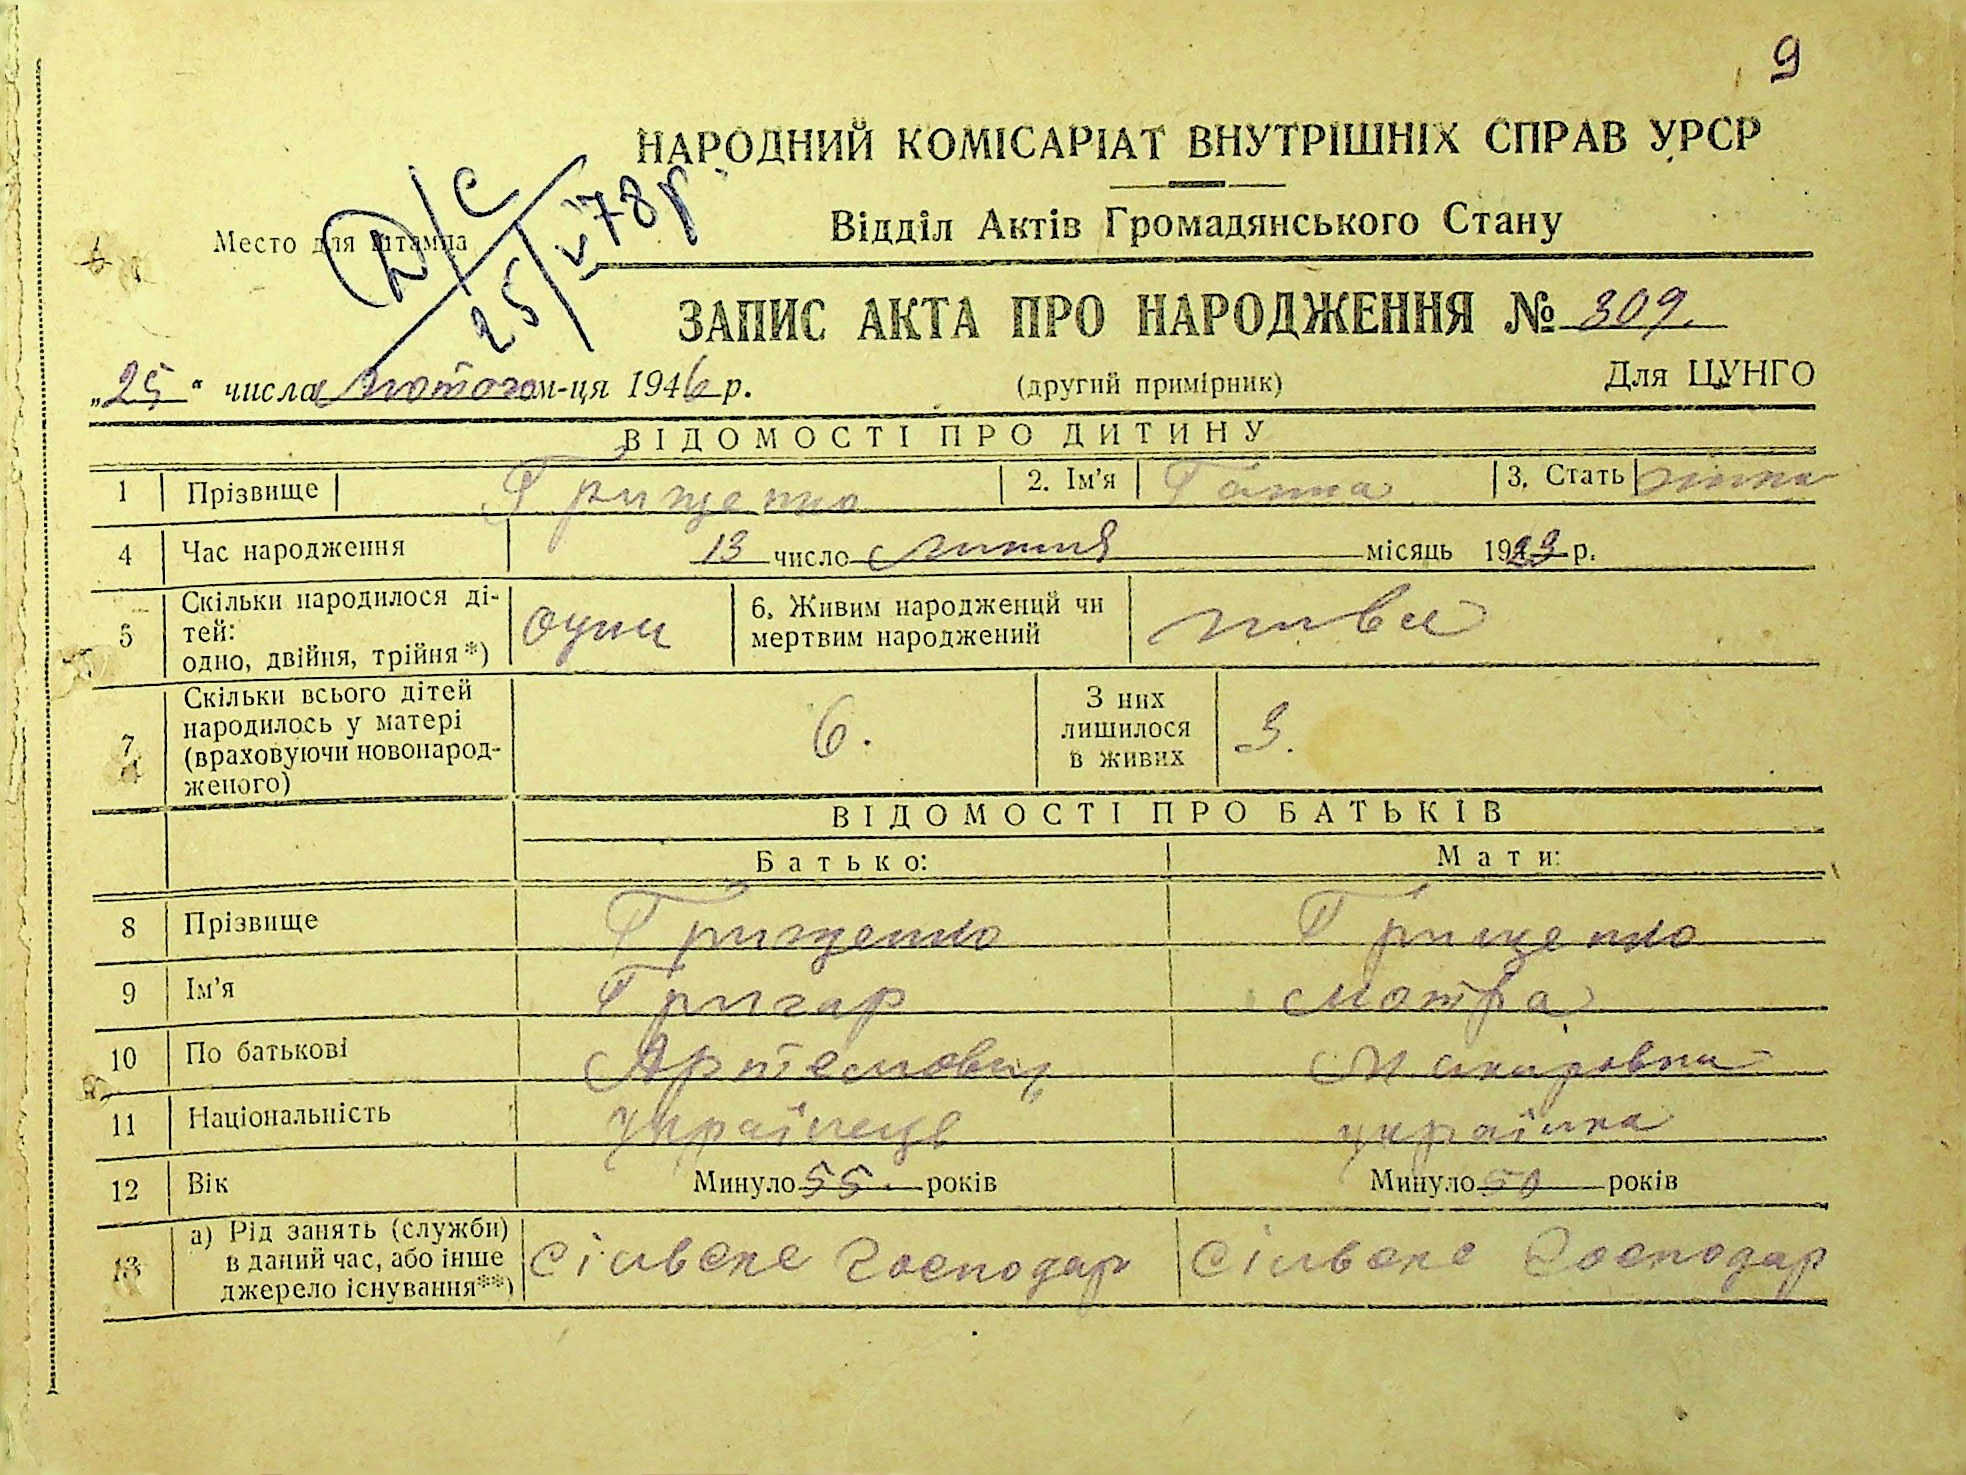 9
НАРОДНИЙ КОМІСАРІАТ ВНУТРІШНІХ СПРАВ УРСР
Д/С
25/VI 78р.
Место для штампа
Відділ Актів Громадянського Стану
ЗАПИС АКТА ПРО НАРОДЖЕННЯ № 309.
„25“ числа лютого м-ця 1946 р. (другий примірник) Для ЦУНГО
ВІДОМОСТІ ПРО ДИТИНУ
1 Прізвище Грищенко 2. Ім'я Ганна 3. Стать жінка
4 Час народження 13 число липня місяць 1923 р.
5 Скільки народилося ді-
тей:
одно, двійня, трійня*) одни 6. Живим народжений чи
мертвим народжений живи
7 Скільки всього дітей
народилось у матері
(враховуючи новонарод-
женого) 6. З них
лишилося
в живих 3.
ВІДОМОСТІ ПРО БАТЬКІВ
Батько: Мати:
8 Прізвище Грищенко Грищенко
9 Ім'я Григор Мотра
10 По батькові Артемович Макаровна
11 Національність українець українка
12 Вік Минуло 55. років Минуло 50 років
13 а) Рід занять (служби)
в даний час, або інше
джерело існування**) Сільске господар Сільске господар